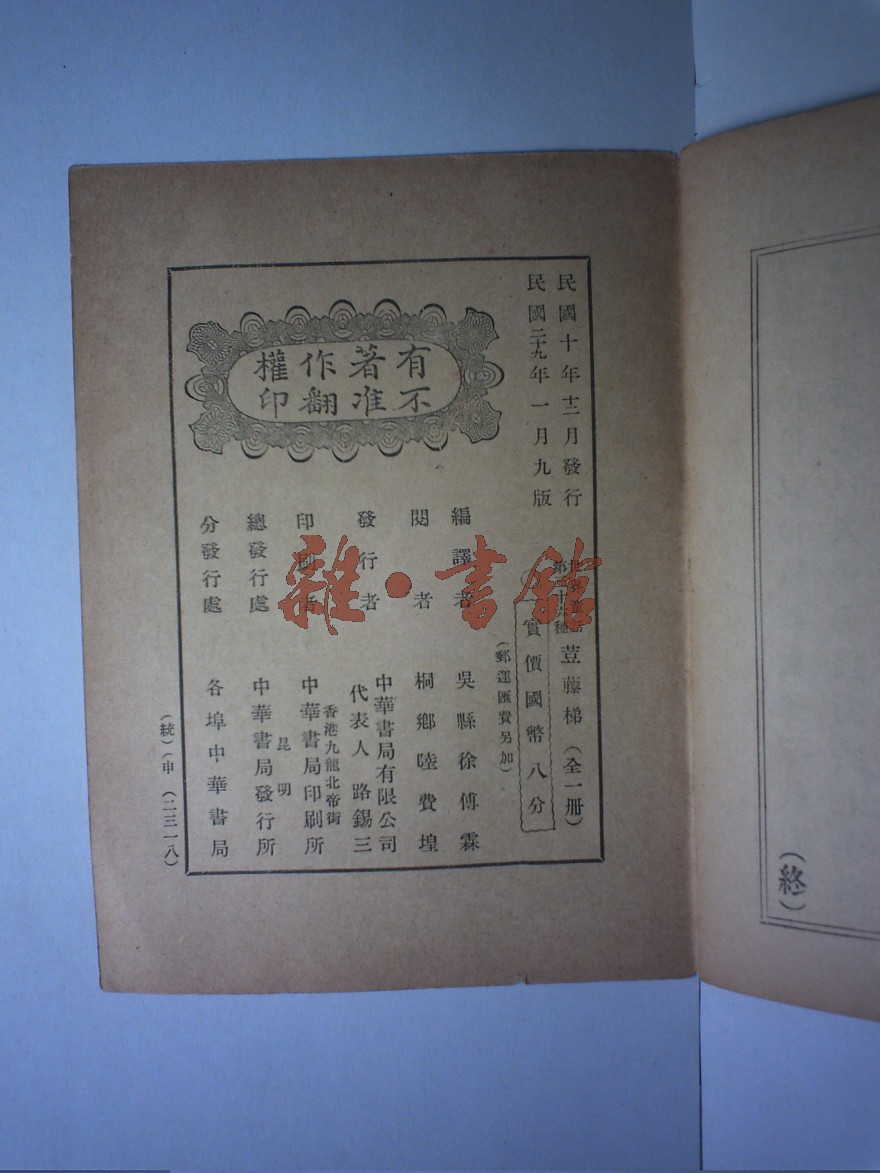 民國十年十二月發行
民國二十九年一月九版
有著作權
不准翻印
第三十六種
荳藤梯（全一冊）
實價國幣八分
（郵運匯費另加）
編譯者 吳縣徐傅霖
閱者 桐鄉陸費堭
發行者 中華書局有限公司
代表人 路錫三
香港九龍北帝街
印刷者 中華書局印刷所
昆明
總發行處 中華書局發行所
分發行處 各埠中華書局
（統）（申）（二三一八）
（終）
雜·書館